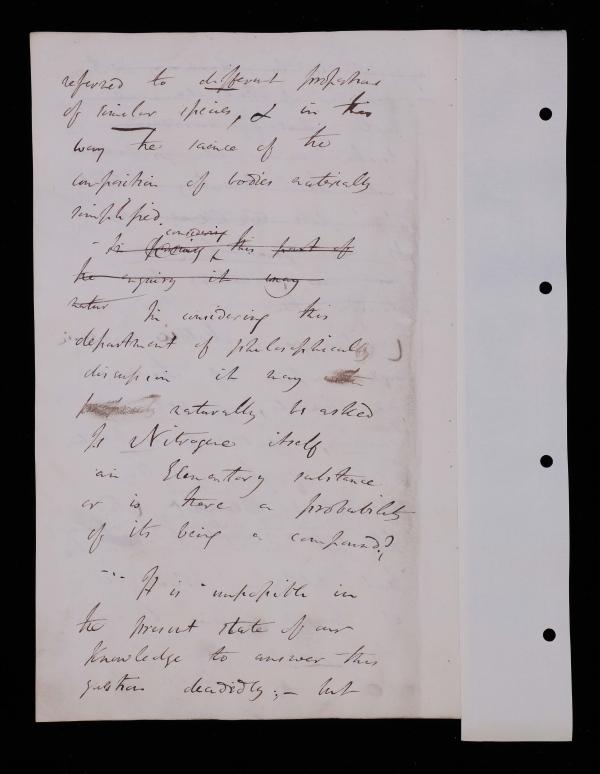 referred to different proportions
of similar species, & in this
way the science of the
composition of bodies materially
simplified.
- In considering this part of
the enquiry it may
natur In considering this
department of philosophically
discussion it may
naturally be asked
Is Nitrogene itself
an Elementary substance
or is there a probability
of its being a compound?
It is impossible in
the present state of our
Knowledge to answer this
question decidedly; - but